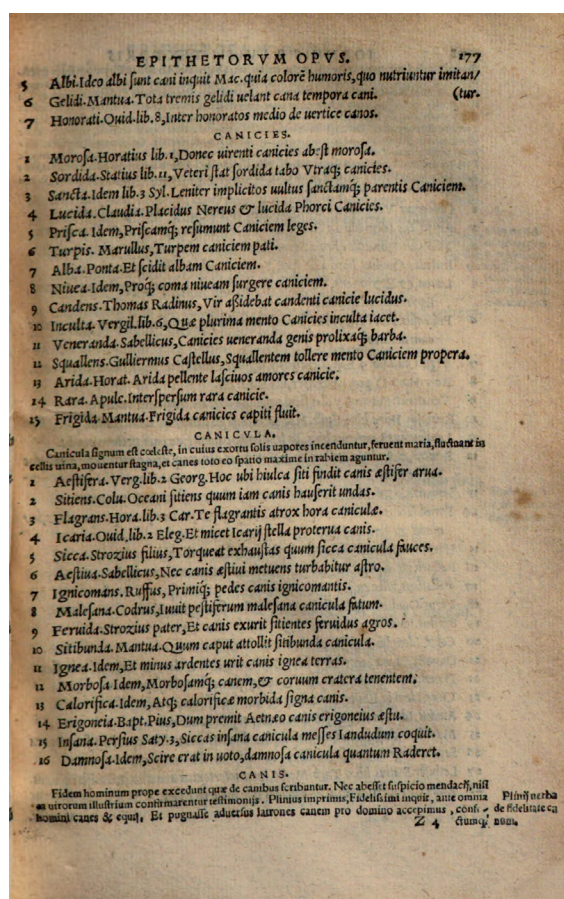 EPITHETORVM OPVS. 177
5 Albi. Ideo albi sunt cani inquit Mac. quia colorē humoris, quo nutriuntur imitan/
6 Gelidi. Mantua. Tota tremis gelidi uelant cana tempora cani. (tur.
7 Honorati. Ouid. lib. 8, Inter honoratos medio de uertice canos.
CANICIES.
1 Morosa. Horatius lib. 1, Donec uirenti canicies abest morosa.
2 Sordida. Statius lib. 11, Veteri stat sordida tabo Vtraq; canicies.
3 Sancta. Idem lib. 3 Syl. Leniter implicitos uultus sanctamq; parentis Caniciem.
4 Lucida. Claudia. Placidus Nereus & lucida Phorci Canicies.
5 Prisca. Idem, Priscamq; resumunt Caniciem leges.
6 Turpis. Marullus, Turpem caniciem pati.
7 Alba. Ponta. Et scidit albam Caniciem.
8 Niuea. Idem, Proq; coma niueam surgere caniciem.
9 Candens. Thomas Radinus, Vir aßidebat candenti canicie lucidus.
10 Inculta. Vergil. lib. 6, Quæ plurima mento Canicies inculta iacet.
11 Veneranda. Sabellicus, Canicies ueneranda genis prolixaq; barba.
12 Squallens. Gulliermus Castellus, Squallentem tollere mento Caniciem propera.
13 Arida. Horat. Arida pellente lasciuos amores canicie.
14 Rara. Apule. Interspersum rara canicie.
15 Frigida. Mantua. Frigida canicies capiti fluit.
CANICVLA.
Canicula signum est cœleste, in cuius exortu solis uapores incenduntur, feruent maria, fluctuant in
cellis uina, mouentur stagna, et canes toto eo spatio maxime in rabiem aguntur.
1 Aestifera. Verg. lib. 2 Georg. Hoc ubi hiulca siti findit canis æstifer arua.
2 Sitiens. Colu. Oceani sitiens quum iam canis hauserit undas.
3 Flagrans. Hora. lib. 3 Car. Te flagrantis atrox hora caniculæ.
4 Icaria. Ouid. lib. 2 Eleg. Et micet Icarij stella proterua canis.
5 Sicca. Strozius filius, Torqueat exhaustas quum sicca canicula fauces.
6 Aestiua. Sabellicus, Nec canis æstiui metuens turbabitur astro.
7 Ignicomans. Ruffus, Primiq; pedes canis ignicomantis.
8 Malesana. Codrus, Iuuit pestiferum malesana canicula fatum.
9 Feruida. Strozius pater, Et canis exurit sitientes feruidus agros.
10 Sitibunda. Mantua. Quum caput attollit sitibunda canicula.
11 Ignea. Idem, Et minus ardentes urit canis ignea terras.
12 Morbosa. Idem, Morbosamq; canem, & coruum cratera tenentem.
13 Calorifica. Idem, Atq; calorificæ morbida signa canis.
14 Erigoneia. Bapt. Pius, Dum premit Aetnæo canis erigoneius æstu.
15 Insana. Persius Saty. 3, Siccas insana canicula messes Iandudum coquit.
16 Damnosa. Idem, Scire erat in uoto, damnosa canicula quantum Raderet.
CANIS.
Fidem hominum prope excedunt quæ de canibus scribuntur. Nec abesset suspicio mendacij, nisi
ea uirorum illustrium confirmarentur testimonijs. Plinius imprimis, Fidelissimi inquit, ante omnia
homini canes & equi. Et pugnasse aduersus latrones canem pro domino accepimus, confe-
Plinij uerba
de fidelitate ca
num.
Z 4 ctumq;